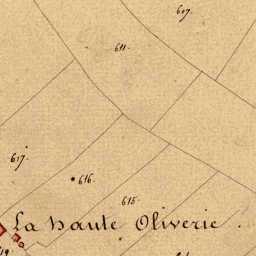 607
611
617
616
615
La haute Oliverie